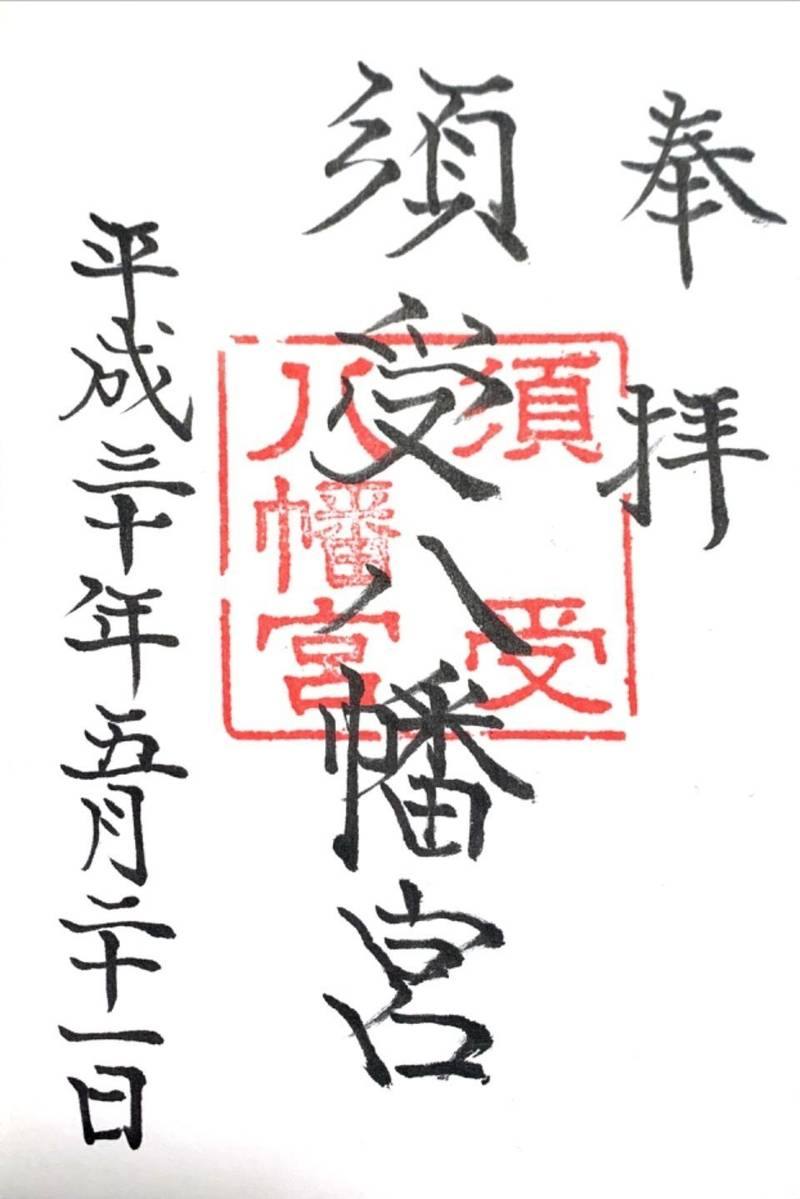 奉拝
須受八幡宮
須受
八幡宮
平成三十年五月二十一日